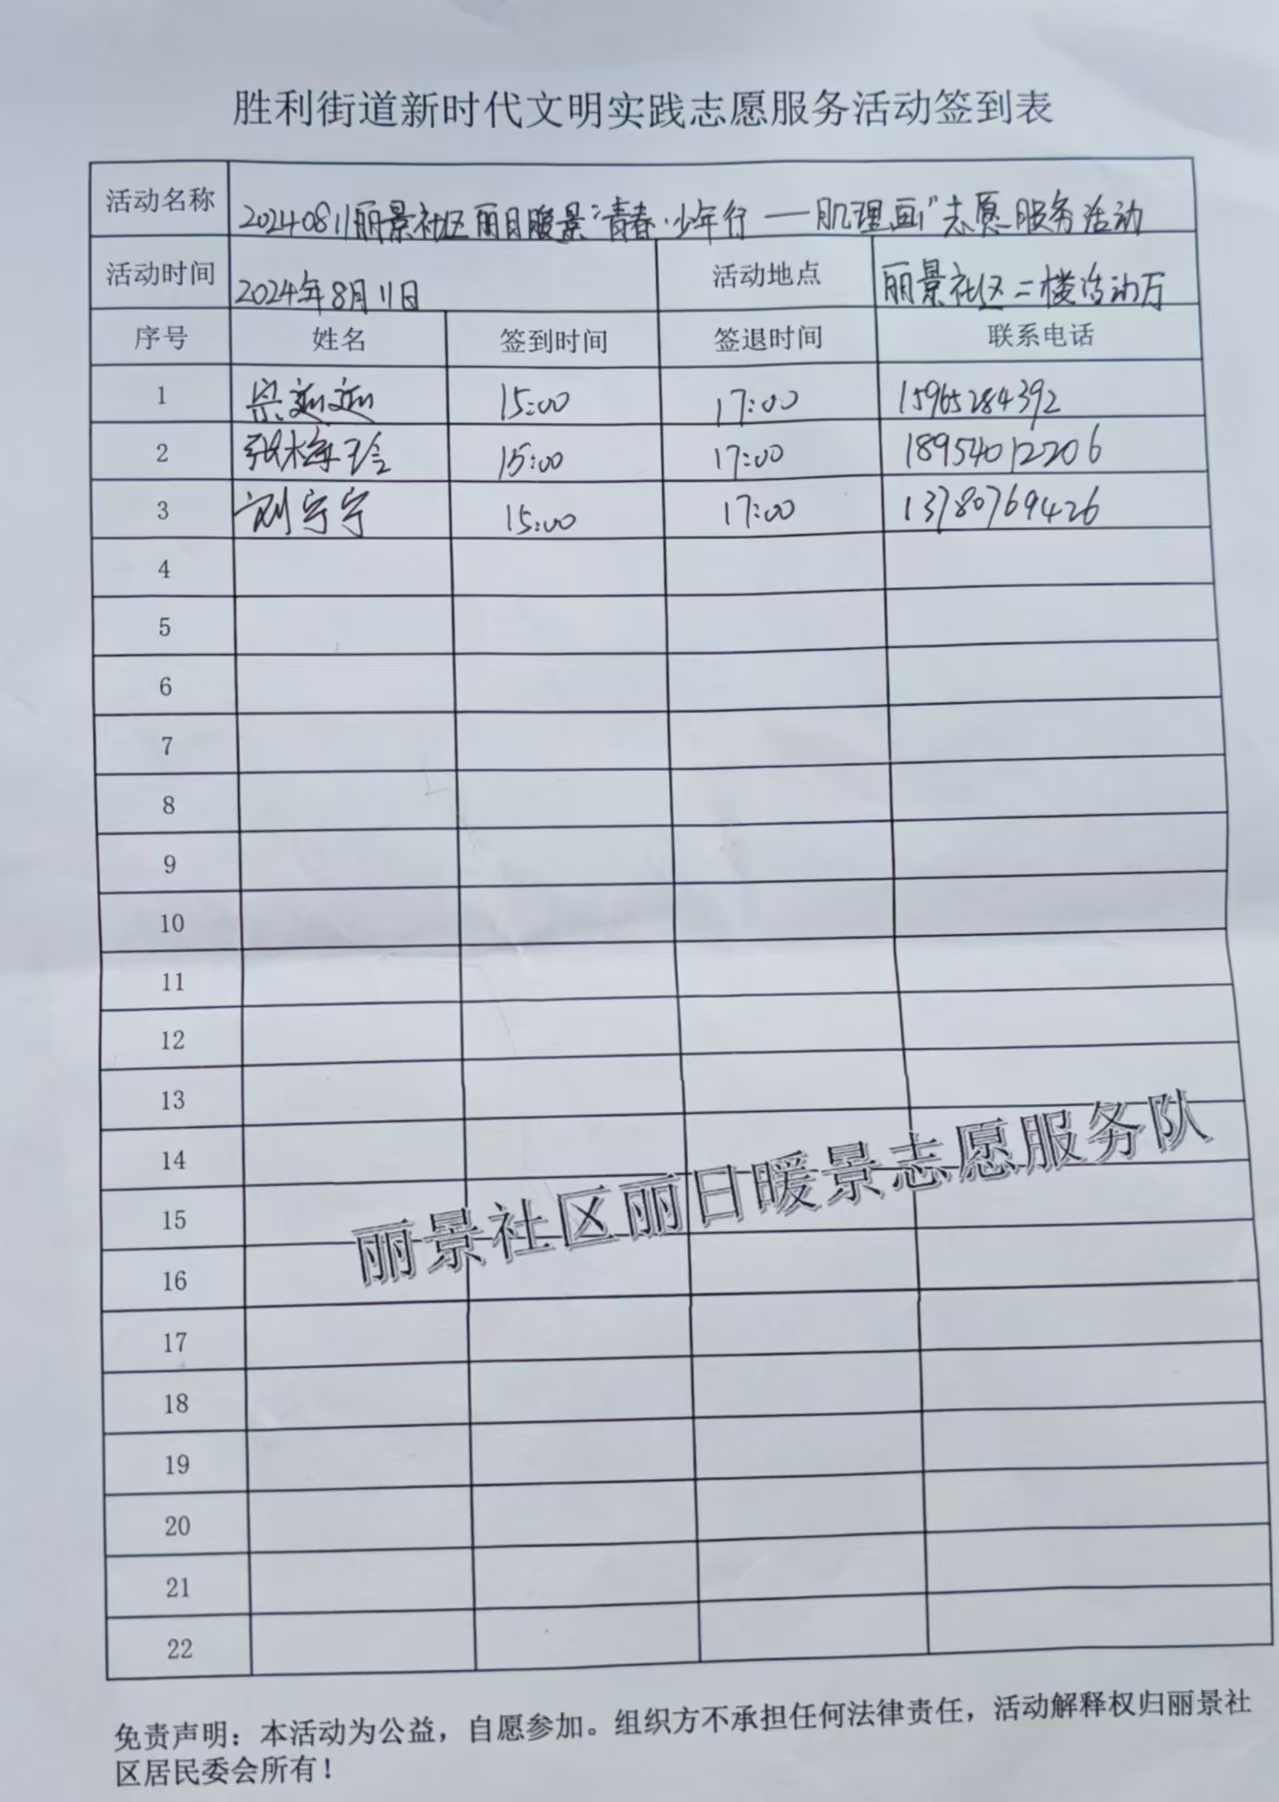 胜利街道新时代文明实践志愿服务活动签到表
活动名称 20240811丽景社区丽日暖景"青春·少年行——肌理画"志愿服务活动
活动时间 2024年8月11日 活动地点 丽景社区二楼活动厅
序号 姓名 签到时间 签退时间 联系电话
1 15:00 17:00 15965284392
2 张梅玲 15:00 17:00 18954012206
3 刘宁宁 15:00 17:00 13780769426
4
5
6
7
8
9
10
11
12
13
14
15
丽景社区丽日暖景志愿服务队
16
17
18
19
20
21
22
免责声明：本活动为公益，自愿参加。组织方不承担任何法律责任，活动解释权归丽景社
区居民委会所有！